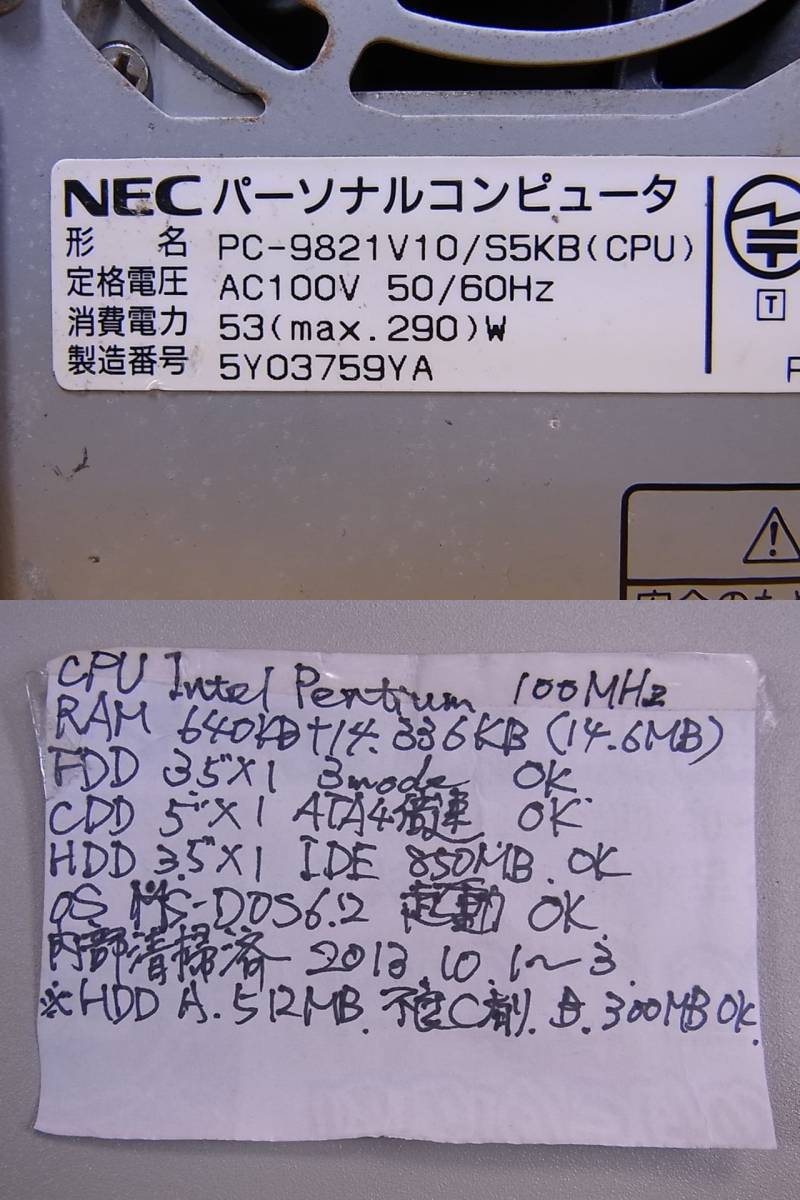 NEC パーソナルコンピュータ
形 名 PC-9821V10/S5KB(CPU)
定格電圧 AC100V 50/60Hz
消費電力 53(max.290)W
製造番号 5Y03759YA
T
CPU Intel Pentium 100MHz
RAM 640KB+14.336KB (14.6MB)
FDD 3.5"×1 3mode OK
CDD 5"×1 ATA4倍速 OK
HDD 3.5"×1 IDE 850MB. OK
OS MS-DOS6.2 起動 OK.
内部清掃済 2013.10.1〜3.
※HDD A.512MB. 不良 B.300MB OK.